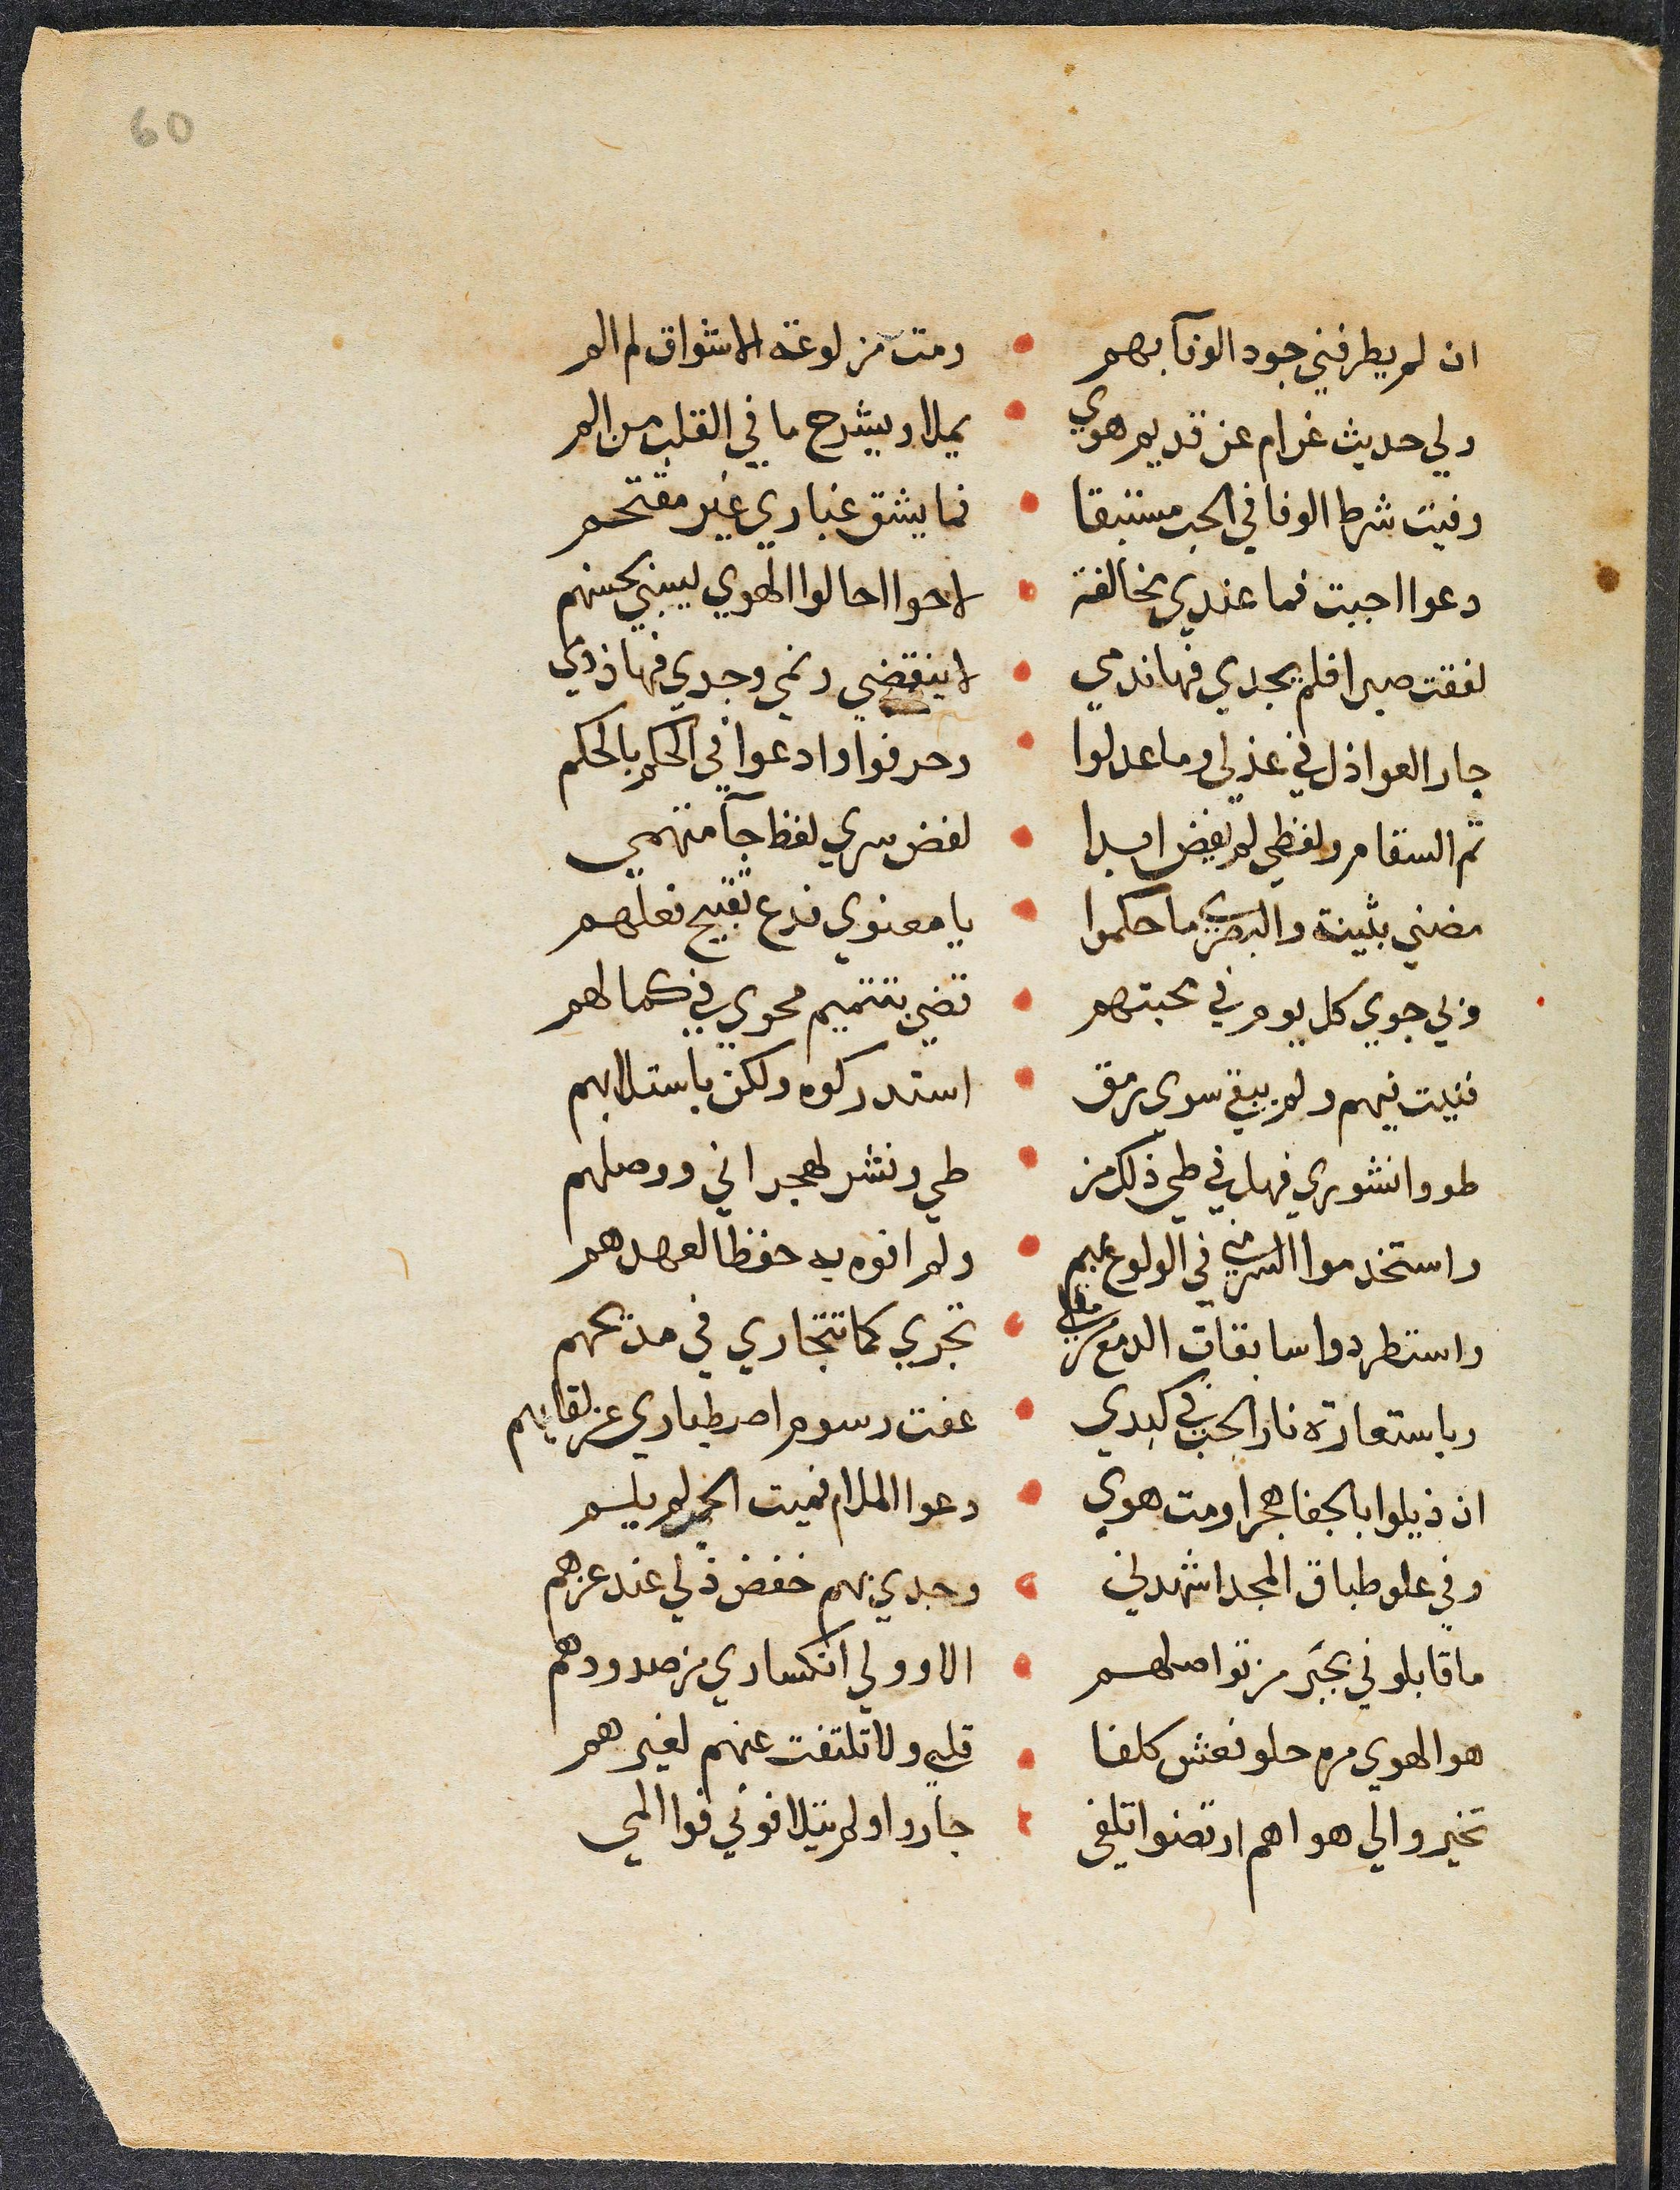 60
ان لم يطرفني جود الوفآ بهم • ومت من لوعة الاشواق لم الم
ولي حديث غرام عن قديم هوي • يملا ويشرح ما في القلب من الم
وفيت شرط الوفا في الحب مستبقا • فما يشق غباري غير مقتحم
دعوا اجبت فما عندي مخالفة • لاحوا احالوا الهوي ليبني بحسنهم
لفقت صبرا فلم يجدي فها ندمي • لا ينقضي ونمي وجدي فها ذدمي
جار العواذل في عذلي وما عدلوا • وحرفوا وادعوا في الحكم بالحكم
تم السقام ولفظي لم يفض ابدا • لفض سري لفظا جآ من فمي
مضني بثينة والبصري ما حكموا • يا معنوي فدع تقبيح فعلهم
ولي جوي كل يوم في محبتهم • تضي بتتميم محوي في كمالهم
فنيت فيهم ولم يبقي سوي رمق • استدركوه ولكن باستلابهم
طووا نشوري فهل في طي ذلك من • طي ونشر لهجراني ووصلهم
واستخدموا السر مني في الولوع بهم • ولم افوه به حفظا لعهدهم
واستطردوا سابقات الدمع من مقلي • تجري كما تتجاري في مديحهم
وباستعارة نار الحب في كبدي • عفت رسوم اصطباري عن لقايهم
ان ذيلوا بالجفا هجرا ومت هوي • دعوا الملام فميت الحب لم يلم
وفي علو طباق المجد اشهدني • وجدي بهم خفض ذلي عند عزهم
ما قابلوني بجبر من تواصلهم • الا وولي انكساري من صدودهم
هو الهوي مره حلو فعش كلفا • قلبي ولا تلتفت عنهم لغيرهم
تخير والي هواهم ارتضوا تلفي • جاروا ولم يتلافوني فوا المي